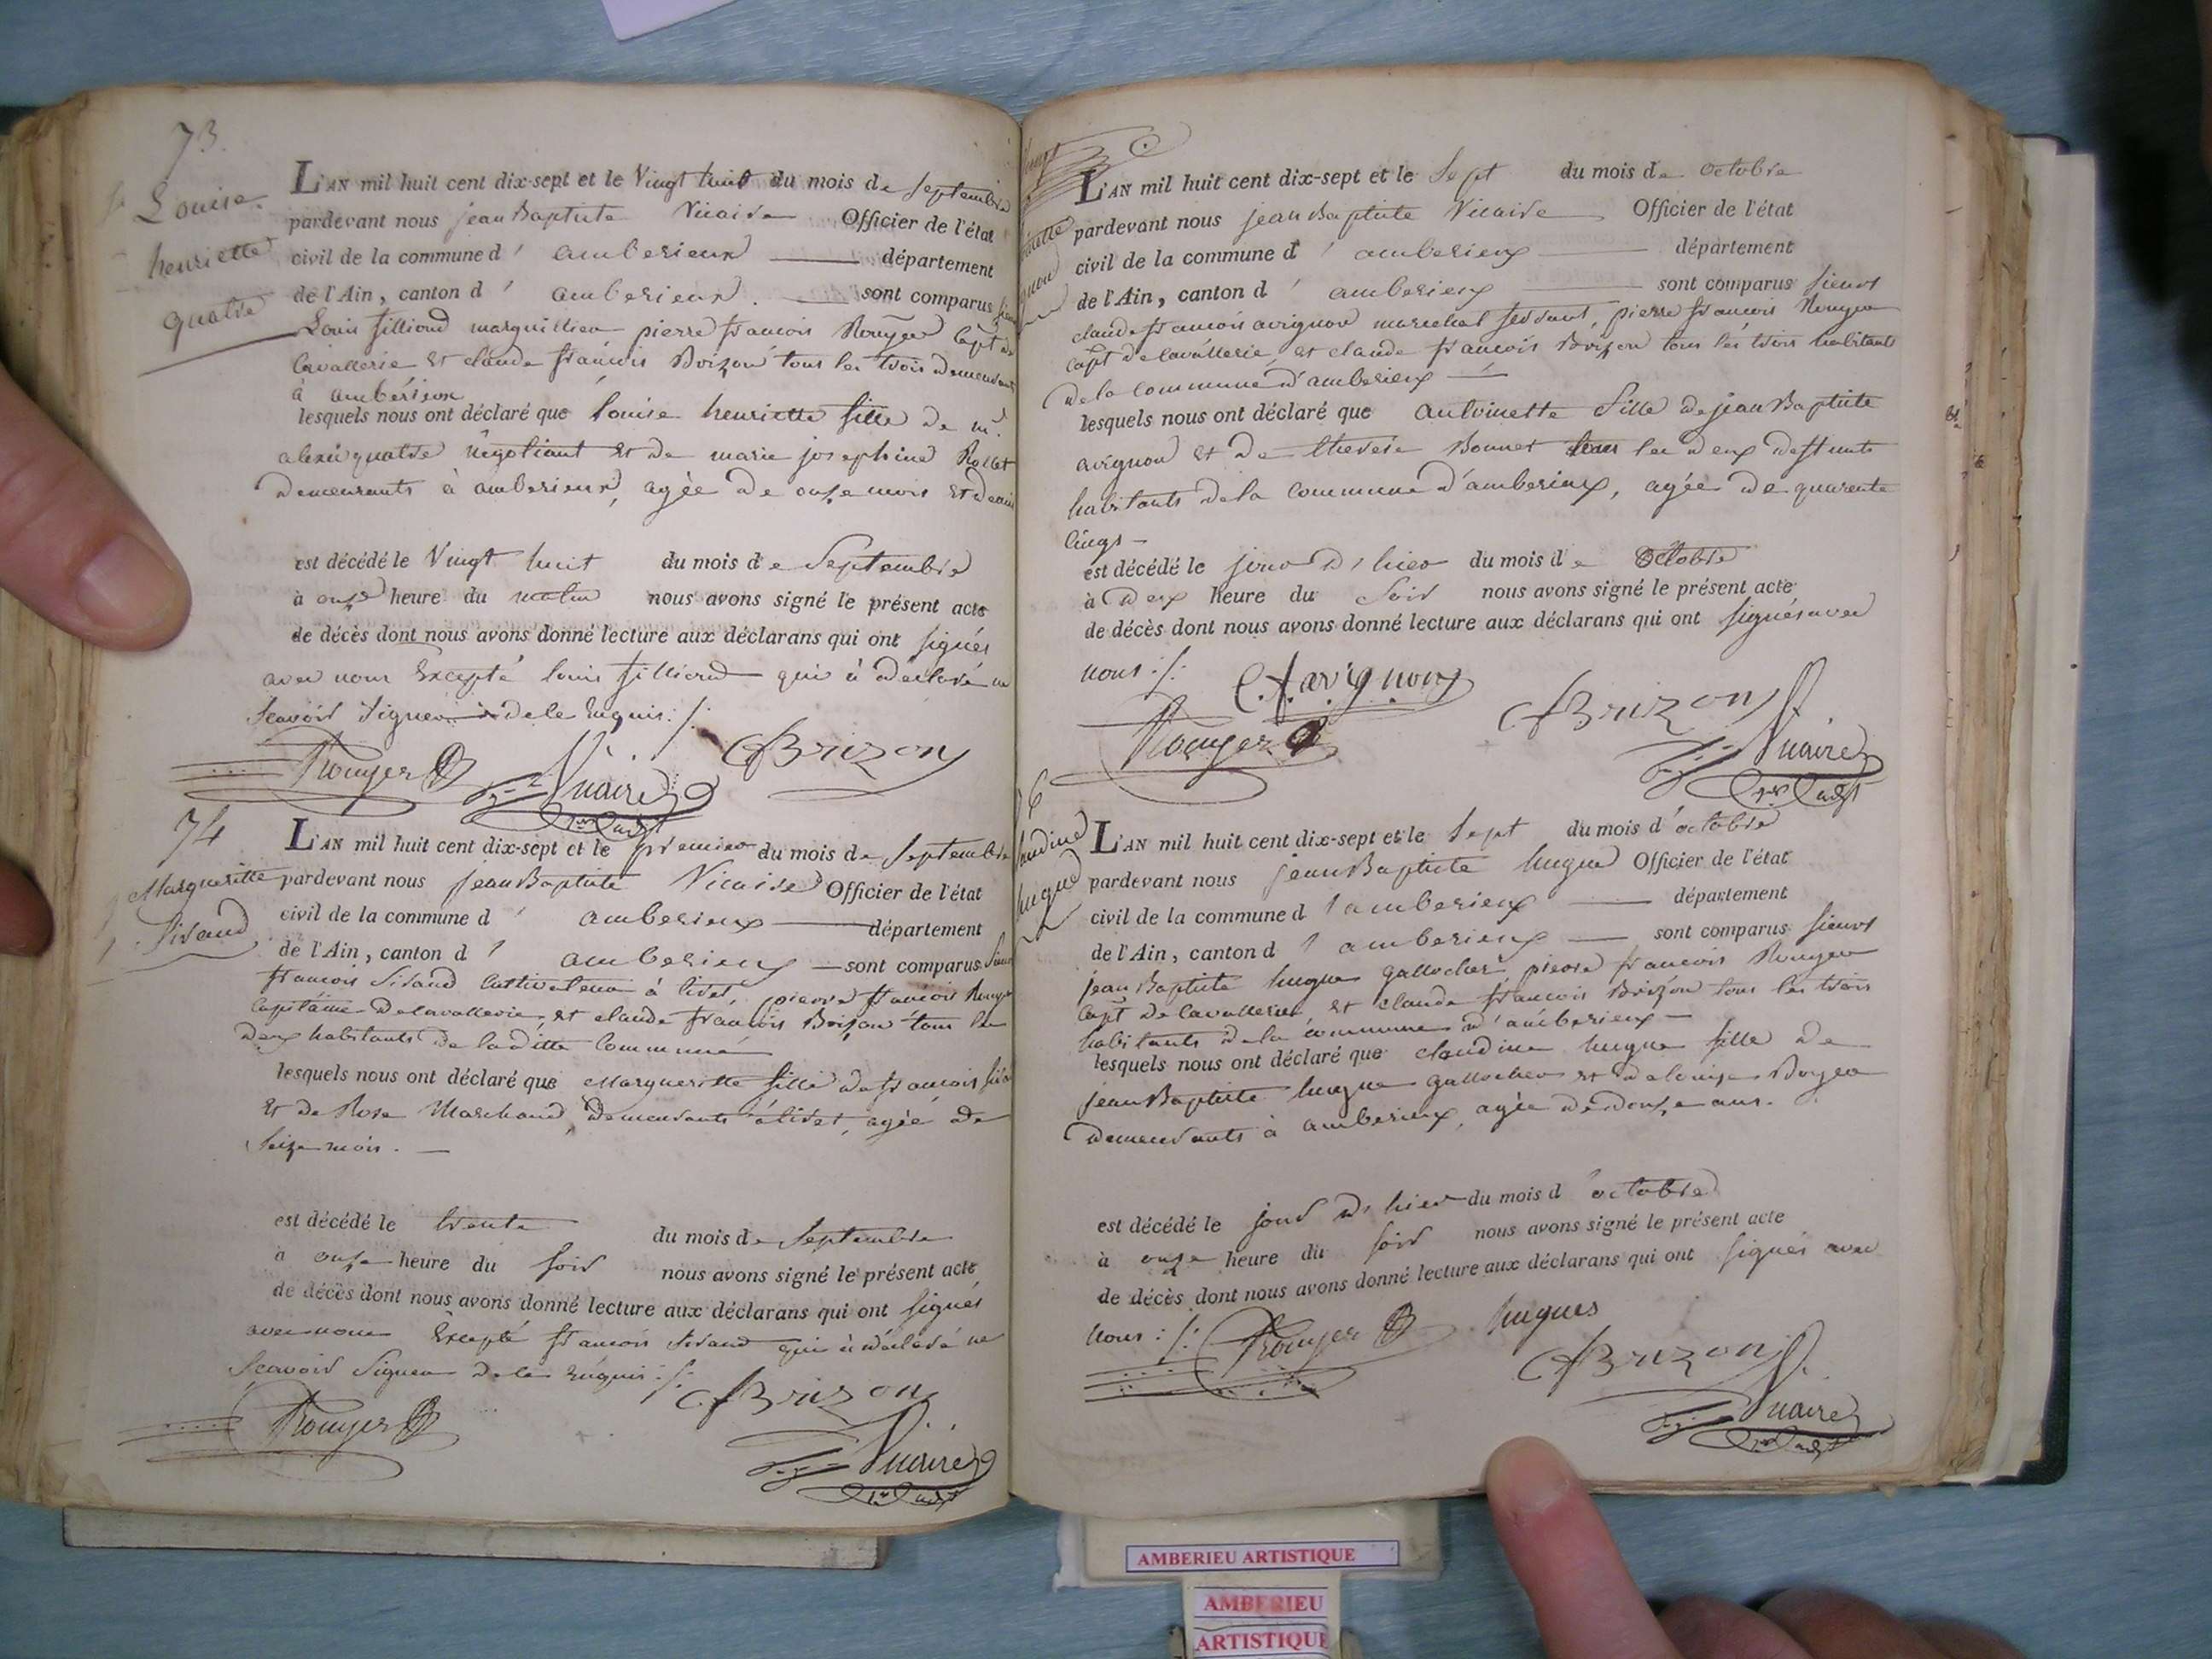 73.
Louise
henriette
quatre
L'AN mil huit cent dix-sept et le Vingt huit du mois de Septembre
pardevant nous jean Baptiste Vicaire Officier de l'état
civil de la commune d' amberieux département
de l'Ain, canton d' amberieux. sont comparus
Louis filliond marguillier pierre francois Rouyer Capt de
Cavallerie et claude francois Brizon tous les trois demeurant
à ambérieux
lesquels nous ont déclaré que louise henriette fille de mr.
alexis quatre négotiant et de marie josephine Rollet
demeurants à amberieux, agée de onze mois et demi
est décédé le Vingt huit du mois de Septembre
à onze heure du matin nous avons signé le présent acte
de décès dont nous avons donné lecture aux déclarans qui ont signés
avec nous Excepté louis filliond qui à déclaré ne
Scavoir Signer de le Enquis ./.
Rouyer Vicaire CfBrizon
74
Margueritte
Sirand
L'AN mil huit cent dix-sept et le premier du mois de Septembre
pardevant nous jean Baptiste Vicaire Officier de l'état
civil de la commune d' amberieux département
de l'Ain, canton d' amberieux sont comparus Sieurs
francois Sirand Cultivateur à tiret, pierre francois Rouyer
Capitaine de Cavallerie, et claude francois Brizon tous les
deux habitants de la ditte Commune
lesquels nous ont déclaré que Margueritte fille de francois Sirand
et de Rose Marchand, demeurants à tiret, agée de
Seize mois. —
est décédé le trente du mois de Septembre
à onze heure du soir nous avons signé le présent acte
de décès dont nous avons donné lecture aux déclarans qui ont signés
avec nous Excepté francois Sirand qui à déclaré ne
Scavoir Signer de le Enquis ./.
CfBrizon
Rouyer
Vicaire
L'AN mil huit cent dix-sept et le Sept du mois de octobre
pardevant nous jean Baptiste Vicaire Officier de l'état
civil de la commune d' amberieux département
de l'Ain, canton d' amberieux sont comparus Sieurs
claude francois avignon marechal ferrant, pierre francois Rouyer
Capt de Cavallerie, et claude francois Brizon tous les trois habitants
de la commune d'amberieux —
lesquels nous ont déclaré que antoinette fille de jean Baptiste
avignon et de therese Bonnet les deux deffunts
habitants de la commune d'amberieux, agée de quarente
cinqs —
est décédé le jour d'hier du mois d'e octobre
à deux heure du Soir nous avons signé le présent acte
de décès dont nous avons donné lecture aux déclarans qui ont signés avec
nous ./. C.f. avignon
Rouyer CfBrizon
Vicaire
76
L'AN mil huit cent dix-sept et le Sept du mois d'octobre
pardevant nous jean Baptiste hugue Officier de l'état
civil de la commune d'amberieux département
de l'Ain, canton d' amberieux sont comparus Sieurs
jean Baptiste hugue gallocher, pierre francois Rouyer
Capt de Cavallerie, et claude francois Brizon tous les trois
habitants de la commune d'amberieux —
lesquels nous ont déclaré que claudine hugue fille de
jean Baptiste hugue gallocher et de louise Boyer
demeurants à amberieux, agée de douze ans.
est décédé le jour d'hier du mois d' octobre
à onze heure du soir nous avons signé le présent acte
de décès dont nous avons donné lecture aux déclarans qui ont signés avec
nous ./. Rouyer hugues
CfBrizon
Vicaire
AMBERIEU ARTISTIQUE
AMBERIEU
ARTISTIQUE